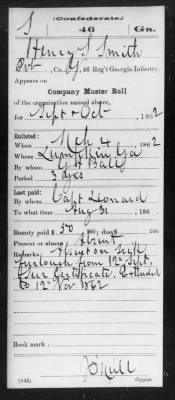 S
(Confederate.)
46 Ga.
Henry S Smith
Pvt, Co. , 46 Reg't Georgia Infantry.
Appears on
Company Muster Roll
of the organization named above,
for Sept & Oct, 1862
Enlisted:
When Mch 4, 1862
Where Lumpkin Ga
By whom
Period 3 yrs
Last paid:
By whom Capt Leonard
To what time Aug 31, 186
Bounty paid $50 100; due $ 100
Present or absent Absent
Remarks: Absent on sick
furlough from 12" Sept.
Certificate. Extended
to 12" Nov 1862
Book mark:
(642)
Copyist.